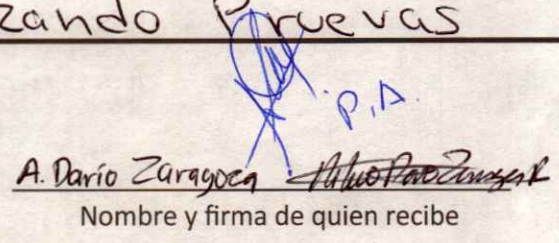 zando Pruevas
P.A.
A. Darío Zaragoza
Nombre y firma de quien recibe